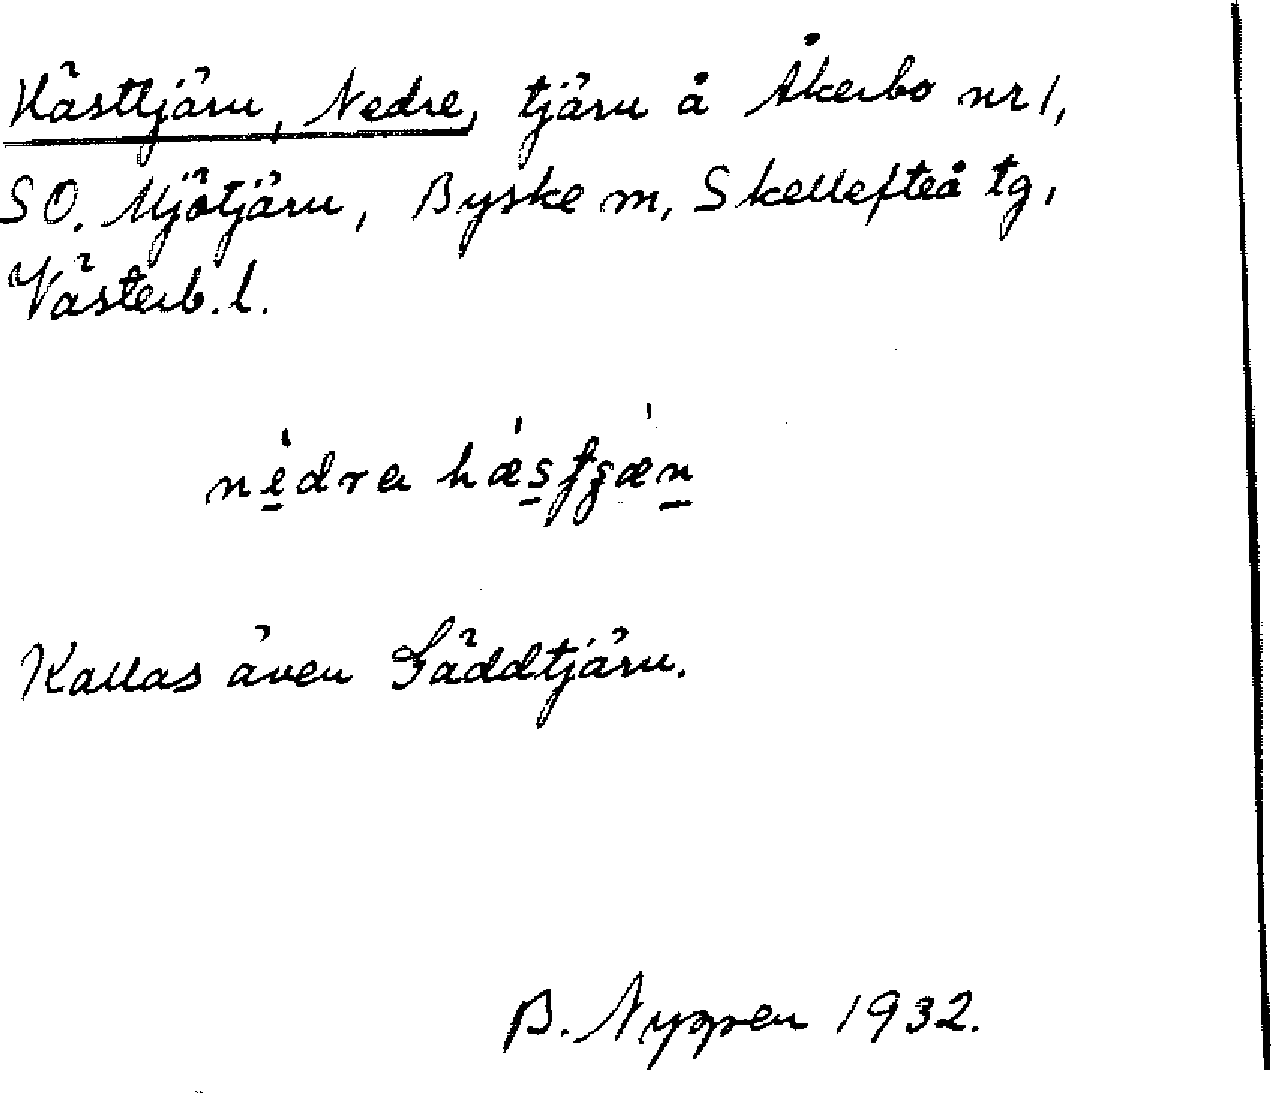 Hästtjärn, Nedre, tjärn å Åkerbo nr 1,
SO. Mjötjärn, Byske m, Skellefteå tg,
Västerb. l.
nedra
Kallas även Gäddtjärn.
B. Nyppen 1932.